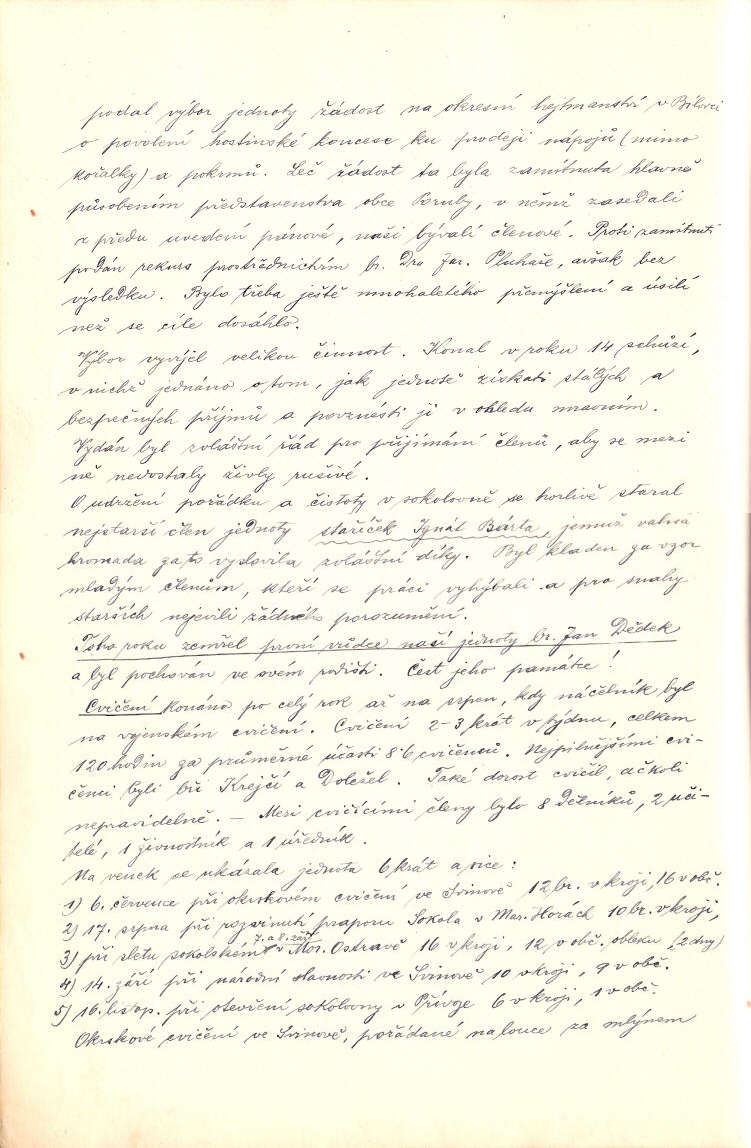 podal výbor jednoty žádost na okresní hejtmanství v Bílovci
o povolení hostinské koncese ku prodeji nápojů (mimo
kořalky) a pokrmů. Leč žádost ta byla zamítnuta hlavně
působením představenstva obce Poruby, v němž zasedali
z předu uvedení pánové, naši bývalí členové. Proti zamítnutí
podán rekurs prostřednictvím br. Dra Jar. Pluhaře, avšak bez
výsledku. Bylo třeba ještě mnohaletého přemýšlení a úsilí
než se cíle dosáhlo.
Výbor vyvíjel velikou činnost. Konal v roku 14 schůzí,
v nichž jednáno o tom, jak jednotě získati stálých a
bezpečných příjmů a povznésti ji v ohledu mravním.
Vydán byl zvláštní řád pro přijímání členů, aby se mezi
ně nedostaly živly rušivé.
O udržení pořádku a čistoty v sokolovně se horlivě staral
nejstarší člen jednoty staříček Ignát Bárta, jemuž valná
hromada zato vyslovila zvláštní díky. Byl kladen za vzor
mladým členům, kteří se práci vyhýbali a pro snahy
starších nejevili žádného porozumění.
Toho roku zemřel první vůdce naší jednoty br. Jan Dědek
a byl pochován ve svém rodišti. Čest jeho památce!
Cvičení konáno po celý rok až na srpen, kdy náčelník byl
na vojenském cvičení. Cvičení 2-3 krát v týdnu, celkem
120 hodin za průměrné účasti 8·6 cvičenců. Nejpilnějšími cvi-
čenci byli bři Krejčí a Doležel. Také dorost cvičil, ačkoli
nepravidelně. — Mezi cvičícími členy bylo 8 dělníků, 2 uči-
telé, 1 živnostník a 1 úředník.
Na venek se ukázala jednota 6 krát a sice:
1) 6. července při okrskovém cvičení ve Svinově 12 br. v kroji, 16 v obč.
2) 17. srpna při rozvinutí praporu Sokola v Mar. Horách 10 br. v kroji,
7. a 8. září
3) při sletu sokolském v Mor. Ostravě 16 v kroji, 12 v obč. obleku (2 dny)
4) 14. září při národní slavnosti ve Svinově 10 v kroji, 9 v obč.
5) 16. listop. při otevření sokolovny v Přívoze 6 v kroji, 1 v obč.
Okrskové cvičení ve Svinově, pořádané na louce za mlýnem